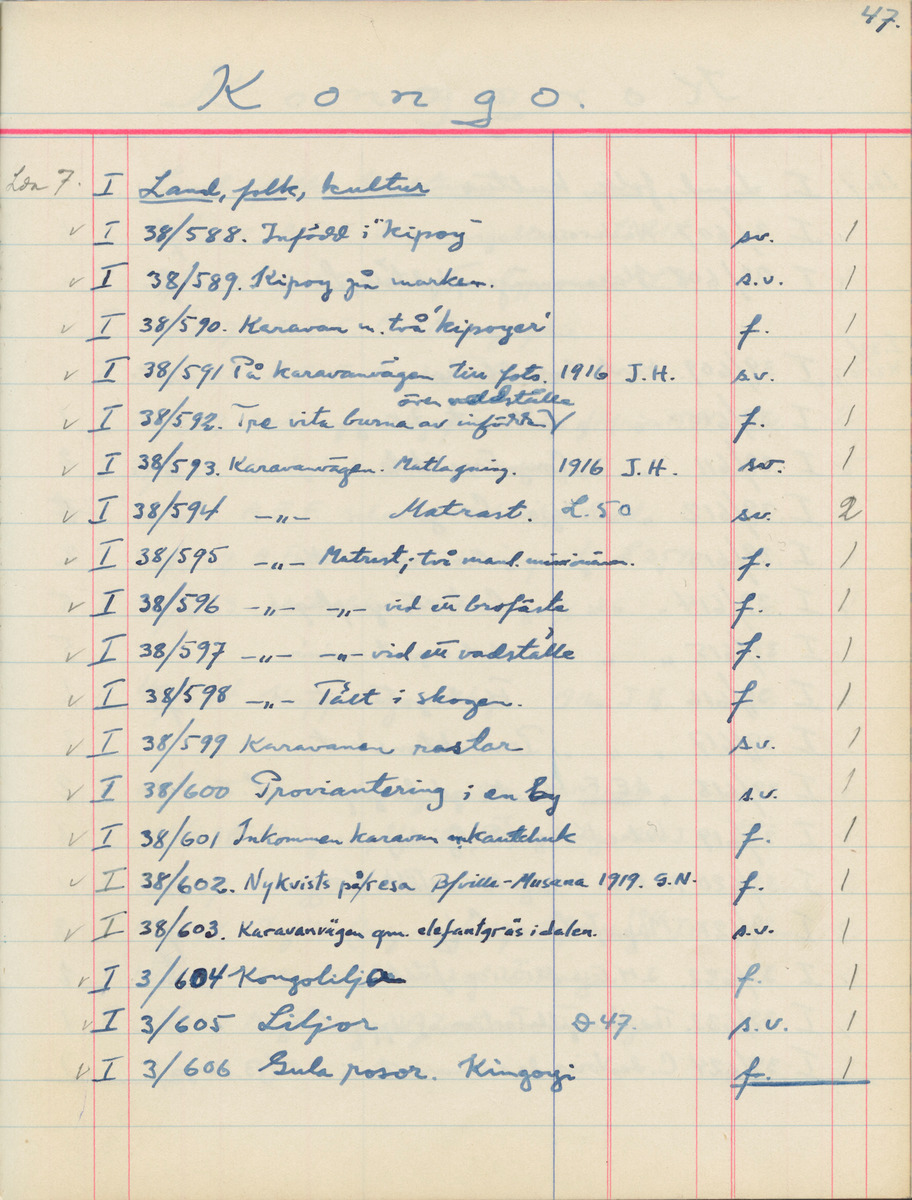 47.
Kongo.
Lda 7. I Land, folk, kultur
v I 38/588. Infödd i "kipoy" sv. 1
v I 38/589. Kipoy på marken. s.v. 1
v I 38/590. Karavan m. två 'kipoyer' f. 1
v I 38/591 På karavanvägen till fots. 1916 J.H. s.v. 1
över vadställe
v I 38/592. Tre vita burna av infödda f. 1
v I 38/593. Karavanvägen. Matlagning. 1916 J.H. sv. 1
v I 38/594 -„- Matrast. L.50 sv. 2
v I 38/595 -„- Matrast; två manl. missionärer. f. 1
v I 38/596 -„- -„- vid ett brofäste f. 1
v I 38/597 -„- -„- vid ett vadställe f. 1
v I 38/598 -„- Tält i skogen. f 1
v I 38/599 Karavanen rastar s.v. 1
v I 38/600 Proviantering i en by s.v. 1
v I 38/601 Inkommen karavan m kautchuk f. 1
v I 38/602. Nykvists på/resa B/ville-Musana 1919. G.N. f. 1
v I 38/603. Karavanvägen gm. elefantgräs i dalen. s.v. 1
v I 3/604 Kongolilja f. 1
v I 3/605 Liljor D 47. s.v. 1
v I 3/606 Gula rosor. Kingoyi f. 1